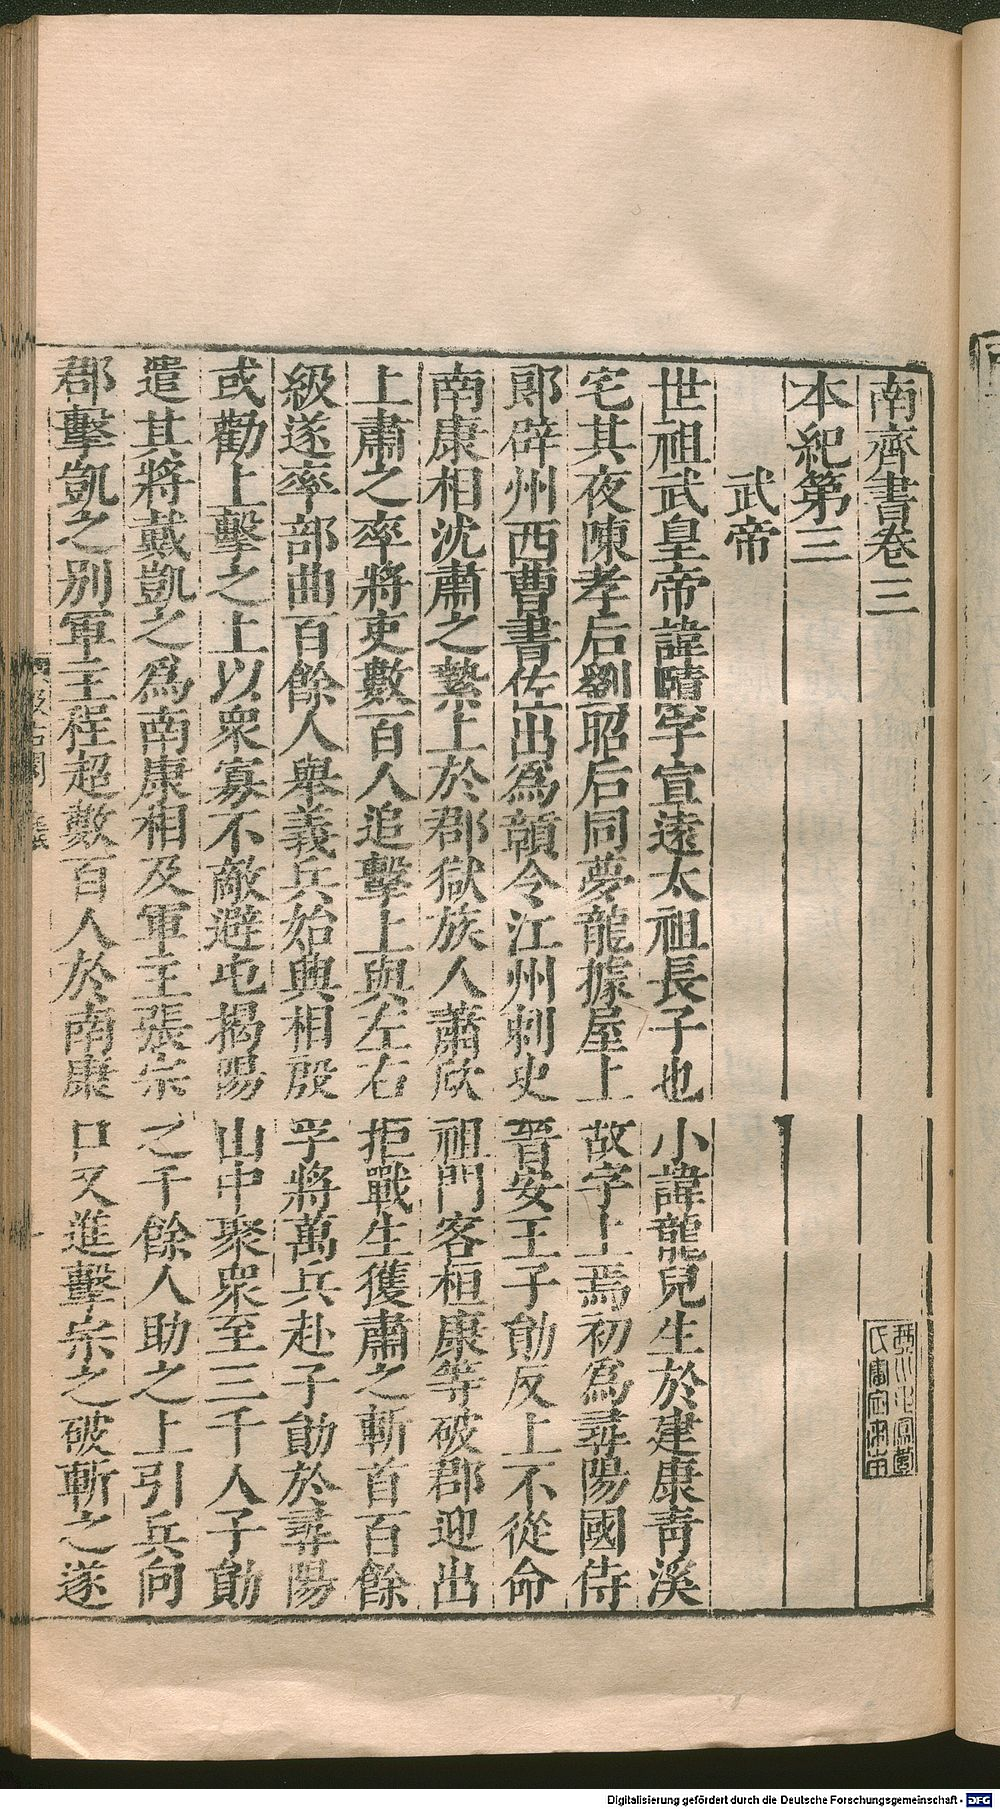 南齊書卷三
本紀第三
武帝
世祖武皇帝諱賾字宣遠太祖長子也小諱龍兒生於建康青溪
宅其夜陳孝后劉昭后同夢龍據屋上故字上焉初爲尋陽國侍
郞辟州西曹書佐出爲贛令江州刺史晉安王子勛反上不從命
南康相沈肅之縶上於郡獄族人蕭欣祖門客桓康等破郡迎出
上肅之率將吏數百人追擊上與左右拒戰生獲肅之斬首百餘
級遂率部曲百餘人舉義兵始興相殷孚將萬兵赴子勛於尋陽
或勸上擊之上以衆寡不敵避屯揭陽山中聚衆至三千人子勛
遣其將戴凱之爲南康相及軍主張宗之千餘人助之上引兵向
郡擊凱之別軍主程超數百人於南康口又進擊宗之破斬之遂
Digitalisierung gefördert durch die Deutsche Forschungsgemeinschaft - DFG